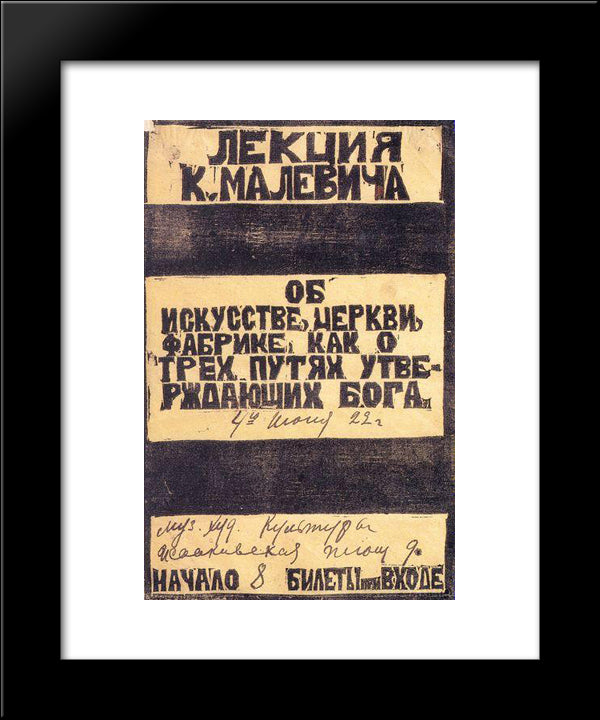 ЛЕКЦИЯ
К. МАЛЕВИЧА
ОБ
ИСКУССТВЕ, ЦЕРКВИ,
ФАБРИКЕ, КАК О
ТРЕХ ПУТЯХ УТВЕ-
РЖДАЮЩИХ БОГА.
4го Июня 22 г
муз. худ. Культуры
Исаакиевская площ 9.
НАЧАЛО 8 БИЛЕТЫ при ВХОДЕ